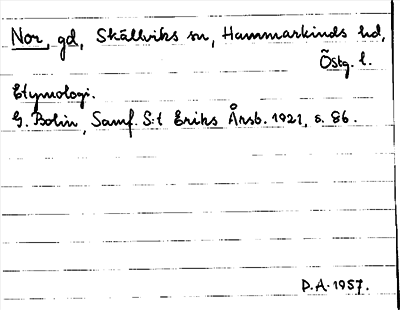 Nor, gd, Skällviks sn, Hammarkinds hd,
Östg. l.
Etymologi.
G. Bolin, Samf. S:t Eriks Årsb. 1921, s. 86.
D.A. 1957.